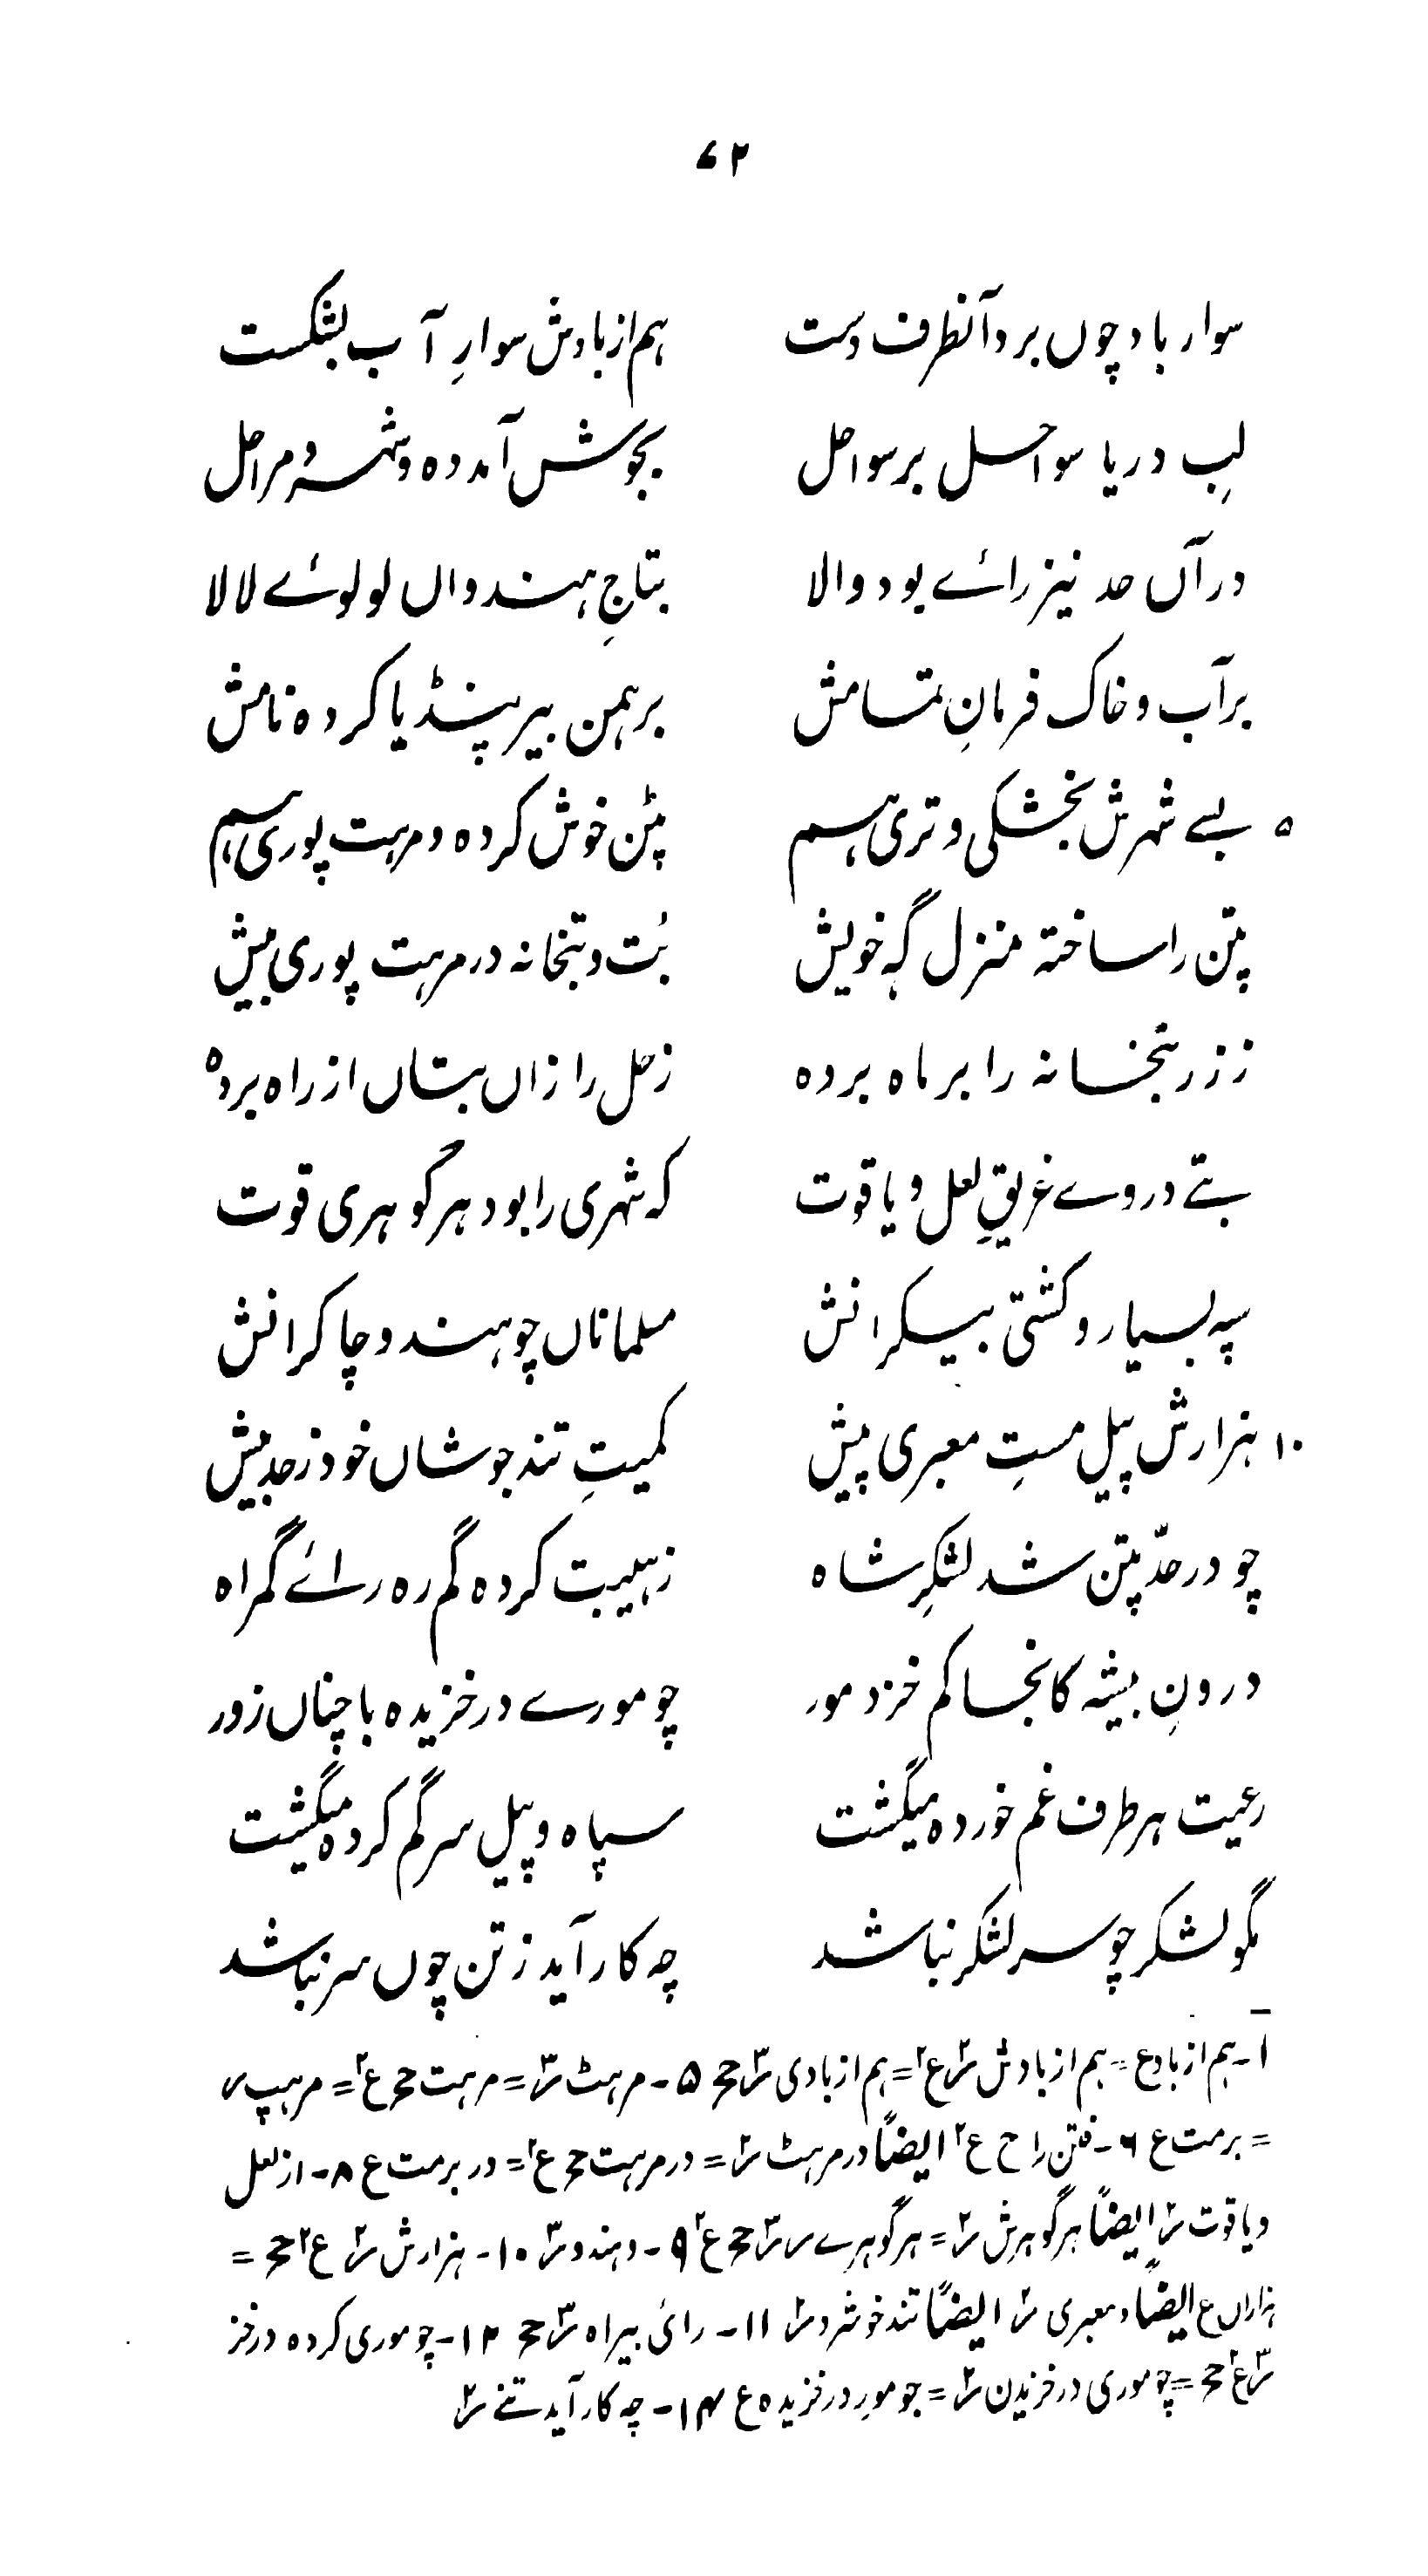 ۷۲
سوار باد چوں برد آنطرف دست هم از بادش سوارِ آب بشکست
لبِ دریا سواحل بر سواحل بجوش آمد ده و شهر و مراحل
در آں حد نیز رائے بود والا بتاجِ هندواں لولوئے لالا
بر آب و خاک فرمانِ تمامش برهمن بیر پنڈیا کرده نامش
۵ بسے شهرش بخشکی و تری هم پٹن خوش کرده و مرهت پوری هم
پتن را ساخته منزل گهِ خویش بُت و بتخانه در مرهت پوری بیش
ز زر بتخانه را بر ماه برده زحل را زاں بتاں از راه برده
بتے در وے غریقِ لعل و یاقوت که شهری را بود هر گوهری قوت
سپه بسیار و کشتی بیکرانش مسلماناں چو هندو چاکرانش
۱۰ هزارش پیلِ مستِ معبری پیش کمیتِ تند جوشاں خود ز حد بیش
چو در حدّ پتن شد لشکرِ شاه ز هیبت کرده گم ره رائے گمراه
درونِ بیشه کانجا کم خزد مور چو مورے در خزیده با چناں زور
رعیت هر طرف غم خورده میگشت سپاه و پیل سر گم کرده میگشت
مگو لشکر چو سر لشکر نباشد چه کار آید ز تن چوں سر نباشد
۱- هم از بادع = هم از بادش ع۲ = هم از بادی ح ۵- مرهٹ = مرهت ح ع۲ = مرهپ
= برمت ع ۶- فتن را ح ع۲ ایضاً در مرهٹ = در مرهت ح ع۲ = در برمت ع ۸- از لعل
و یاقوت ایضاً هر گوهرش = هر گوهرے ح ع۲ ۹- و هندو ۱۰- هزارش ع۲ ح =
هزاراں ع ایضاً و معبری ایضاً تند خوشرد ۱۱- رائی بیراه ح ۱۲- چو موری کرده در خز
ع۲ ح = چو موری در خزیدن = چو مور در خزیده ع ۱۴- چه کار آید تنے